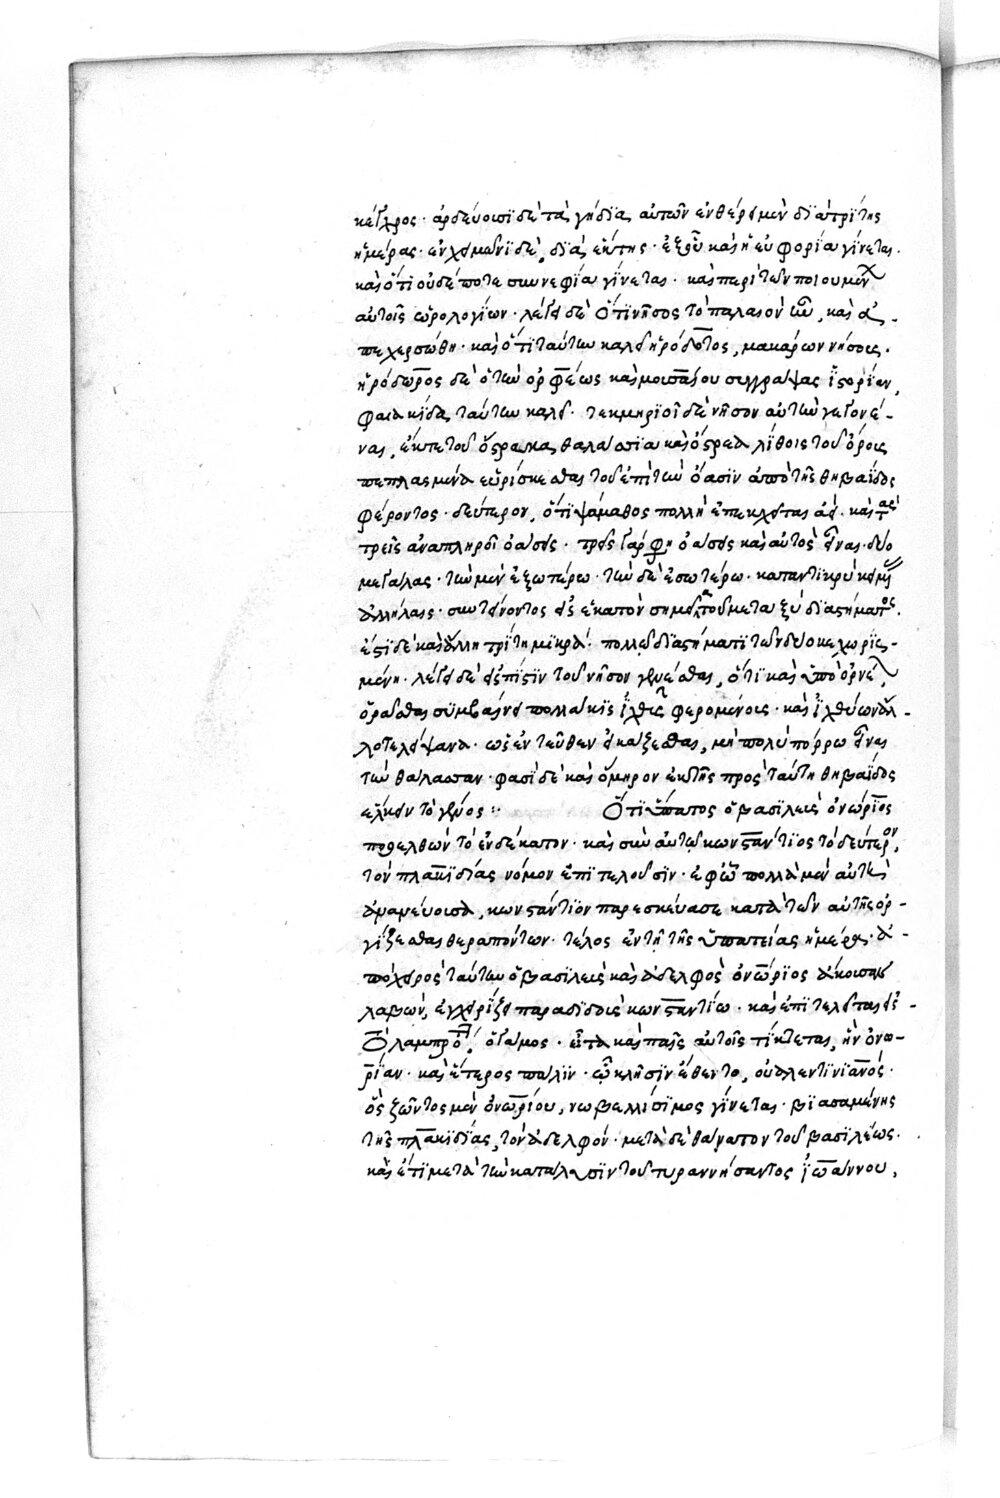 κέγχρος· ἀρδεύουσι δὲ τὰ γήδια αὐτῶν ἐν θέρει μὲν διὰ τρίτης
ἡμέρας· ἐν χειμῶνι δὲ, διὰ ἕκτης· ἐξ οὗ καὶ ἡ εὐφορία γίνεται.
καὶ ὅτι οὐδέποτε συννεφία γίνεται· καὶ περὶ τῶν ποιουμένων
αὐτοῖς ὡρολογίων· λέγει δὲ ὅτι νῆσος τὸ παλαιὸν ἦν, καὶ ἀ-
πεχερσώθη· καὶ ὅτι ταύτην καλεῖ ἡρόδοτος, μακάρων νήσους·
ἡρόδωρος δὲ ὁ τὴν ὀρφέως καὶ μουσαίου συγγράψας ἱστορίαν,
φαιακίδα ταύτην καλεῖ· τεκμηριοῖ δὲ νῆσον αὐτὴν γεγονέ-
ναι, ἔκ τε τοῦ ὄστρακα θαλάσσια καὶ ὄστρεα λίθοις τοῦ ὄρους
πεπλασμένα εὑρίσκεσθαι τοῦ ἐπὶ τὴν ὄασιν ἀπὸ τῆς θηβαΐδος
φέροντος· δεύτερον, ὅτι ψάμαθος πολλὴ ἐπεκχεῖται ἀεὶ· καὶ τὰς
τρεῖς ἀναπληροῖ ὀάσεις· τρεῖς γάρ φησιν ὀάσεις καὶ αὐτὸς εἶναι· δύο
μεγάλας· τὴν μὲν ἐξωτέρω· τὴν δὲ ἐσωτέρω· καταντικρὺ κειμένας
ἀλλήλαις· συντείνοντος εἰς ἑκατὸν σημεῖα τοῦ μεταξὺ διαστήματος.
ἔστι δὲ καὶ ἄλλη τρίτη μικρὰ· πολλῷ διαστήματι τῶν δύο κεχωρισ-
μένη· λέγει δὲ εἰς πίστιν τοῦ νῆσον γενέσθαι, ὅτι καὶ ὑπὸ ὀρνέων
ὁρᾶσθαι συμβαίνει πολλάκις ἰχθῦς φερομένους· καὶ ἰχθύων ἄλ-
λοτε λείψανα· ὡς ἐντεῦθεν εἰκάζεσθαι, μὴ πολὺ πόρρω εἶναι
τὴν θάλασσαν· φασὶ δὲ καὶ ὅμηρον ἐκ τῆς πρὸς ταύτῃ θηβαΐδος
ἕλκειν τὸ γένος : Ὅτι ὕπατος ὁ βασιλεὺς ὀνώριος
προελθὼν τὸ ἑνδέκατον· καὶ σὺν αὐτῷ κωνστάντιος τὸ δεύτερον,
τὸν πλακιδίας γάμον ἐπιτελοῦσιν· ἐφ' ᾧ πολλὰ μὲν αὐτὴ
ἀναμένουσα, κωνστάντιον παρεσκεύασε κατὰ τῶν αὐτῆς ὀρ-
γίζεσθαι θεραπόντων· τέλος ἐν τῇ τῆς ὑπατείας ἡμέρᾳ· ἀ-
πὸ χειρὸς ταύτην ὁ βασιλεὺς καὶ ἀδελφὸς ὀνώριος ἄκουσαν
λαβὼν, ἐγχειρίζει παραδιδοὺς κωνσταντίῳ· καὶ ἐπιτελεῖται εἰς
τὸ λαμπρότατον, ὁ γάμος· εἶτα καὶ παῖς αὐτοῖς τίκτεται, ἣν ὀνω-
ρίαν· καὶ ἕτερος πάλιν· ᾧ κλῆσιν ἔθεντο, οὐαλεντινιανός·
ὃς ζῶντος μὲν ὀνωρίου, νωβελλίσιμος γίνεται· βιασαμένης
τῆς πλακιδίας, τὸν ἀδελφόν· μετὰ δὲ θάνατον τοῦ βασιλέως.
καὶ ἔτι μετὰ τὴν κατάλυσιν τοῦ τυραννήσαντος ἰωάννου,